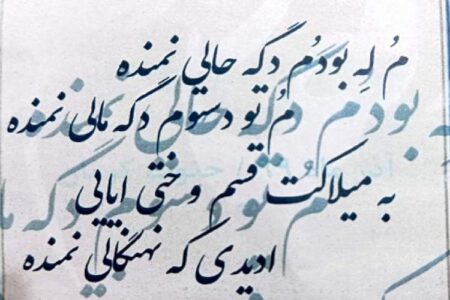 مُ لِه بودمُ دگه حالي نمنده
مُ تو دسوم دگه مالی نمنده
به میلاکت قسم وختی ایایی
ادیدی که نهنگالي نمنده